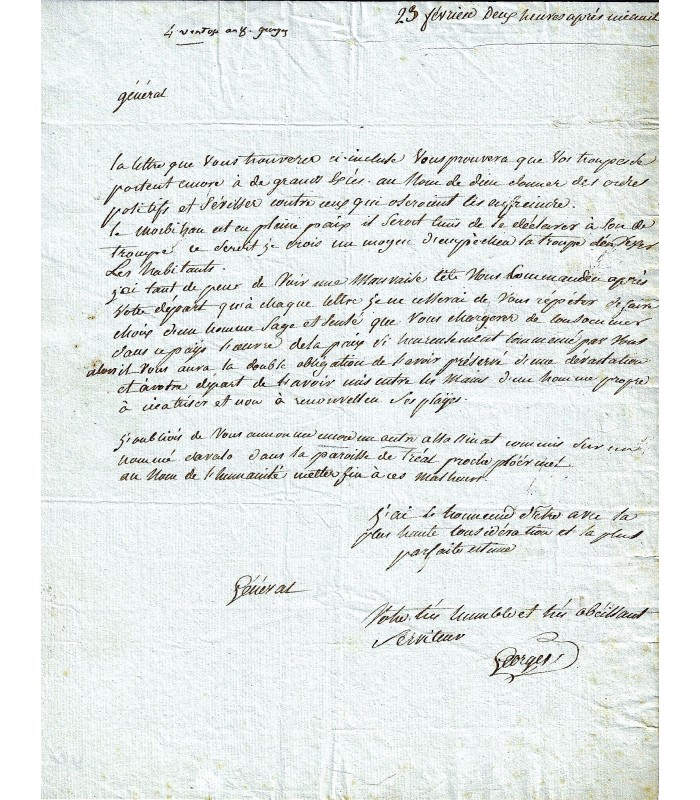 23 février Deux heures après minuit
4 ventose an 8. georges
général
la lettre que Vous trouverez ci-incluse Vous prouvera que Vos troupes se
portent encore à de grands Excès. au Nom de dieu donner des ordres
positifs et Sévissez contre ceux qui oseroient les enfreindre.
le morbihan est en pleine paix il seroit tems de le déclarer à son de
trompe ce seroit je crois un moyen d'empecher la troupe de vexer
Les habitants.
j'ai tant de peur de Voir une Mauvaise tête Vous Commander après
Votre départ qu'à chaque lettre je ne cesserai de Vous répéter de faire
choix d'un homme Sage et sensé que Vous chargerez de consommer
dans ce pays l'œuvre de la paix si heureusement commencé par Vous
alors il Vous aura la double obligation de l'avoir préservé d'une dévastation
et à votre départ de l'avoir mis entre les Mains d'un homme propre
à cicatriser et non à renouveller ses playes.
j'oubliois de Vous annoncer encore un autre assassinat commis sur un
nommé davalo dans la paroisse de tréal proche ploërmel
au Nom de l'humanité mettez fin à ces Malheurs.
j'ai l'honneur d'être avec la
plus haute Considération et la plus
parfaite estime
Général
Votre très humble et très obéissant
Serviteur
Georges